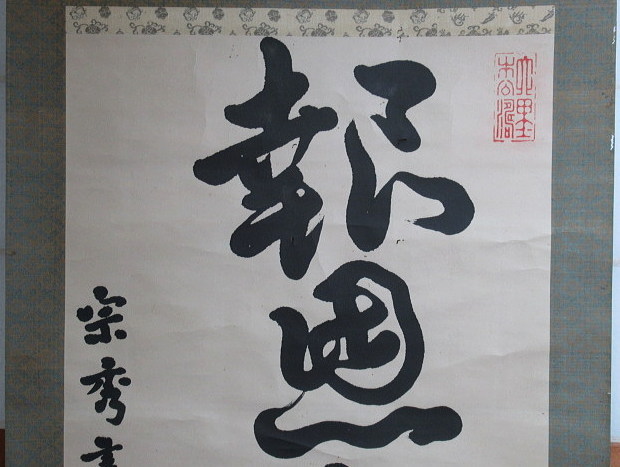 報恩
宗秀書